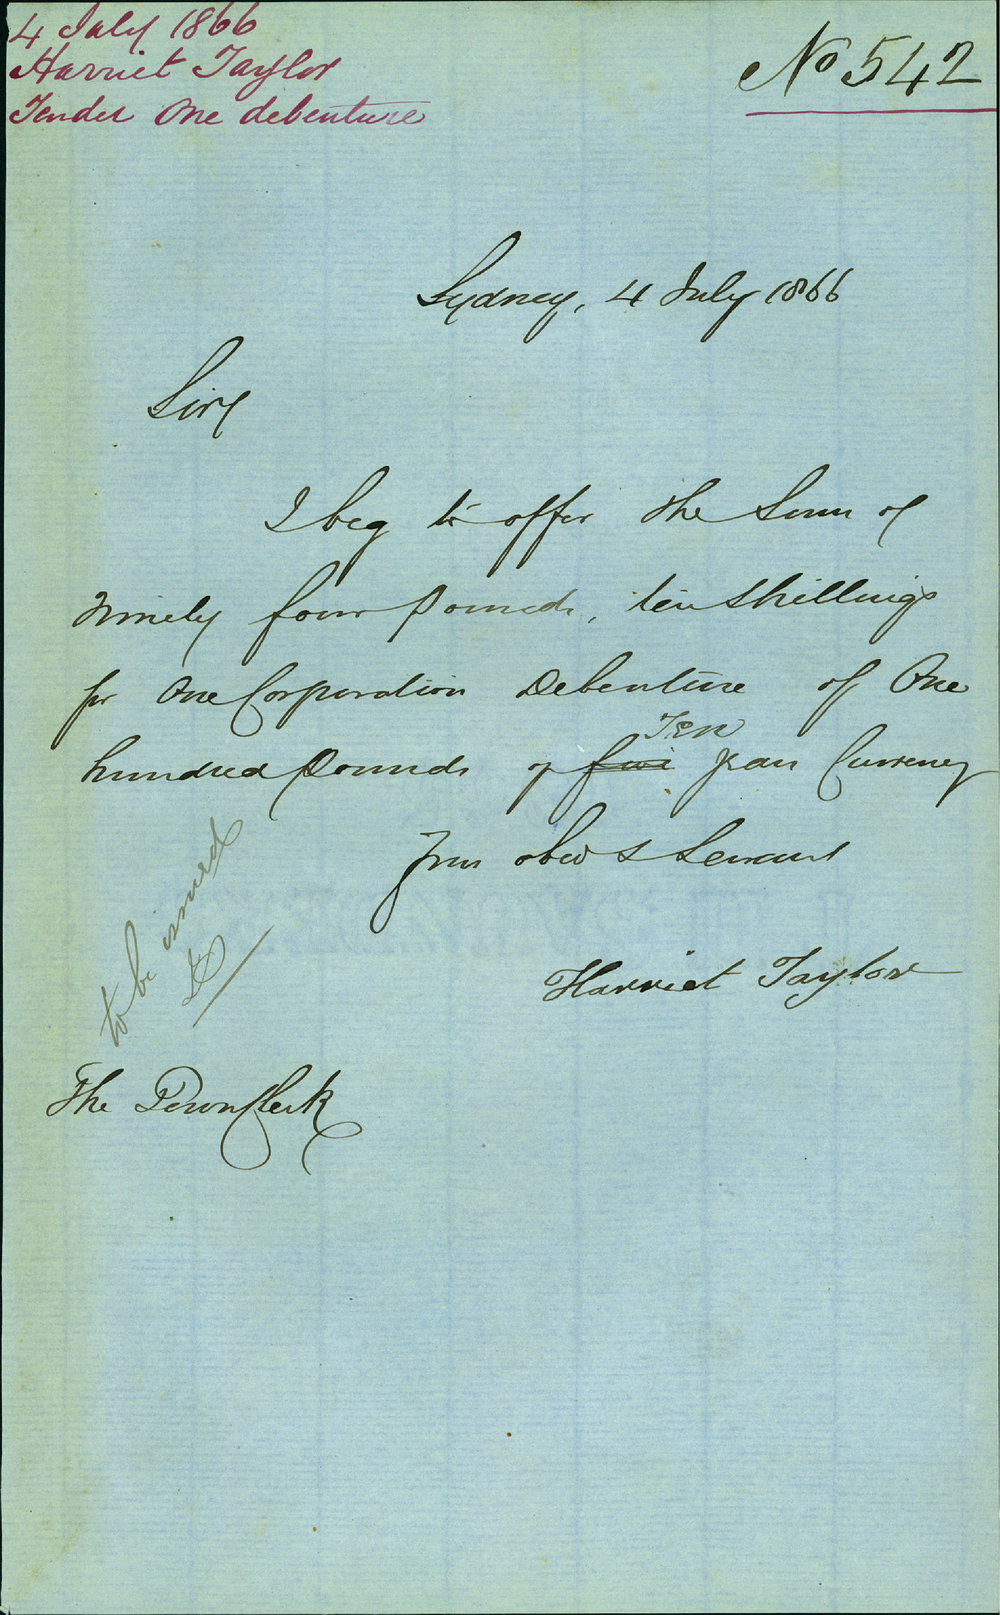 4 July 1866
Harriet Taylor
Tender One debenture
No 542
Sydney, 4 July 1866
Sir
I beg to offer the Sum of
Ninety four Pounds, ten Shillings
for One Corporation Debenture of One
hundred Pounds of five Ten years Currency
Your obedt Servant
Harriet Taylor
to be issued
The Town Clerk